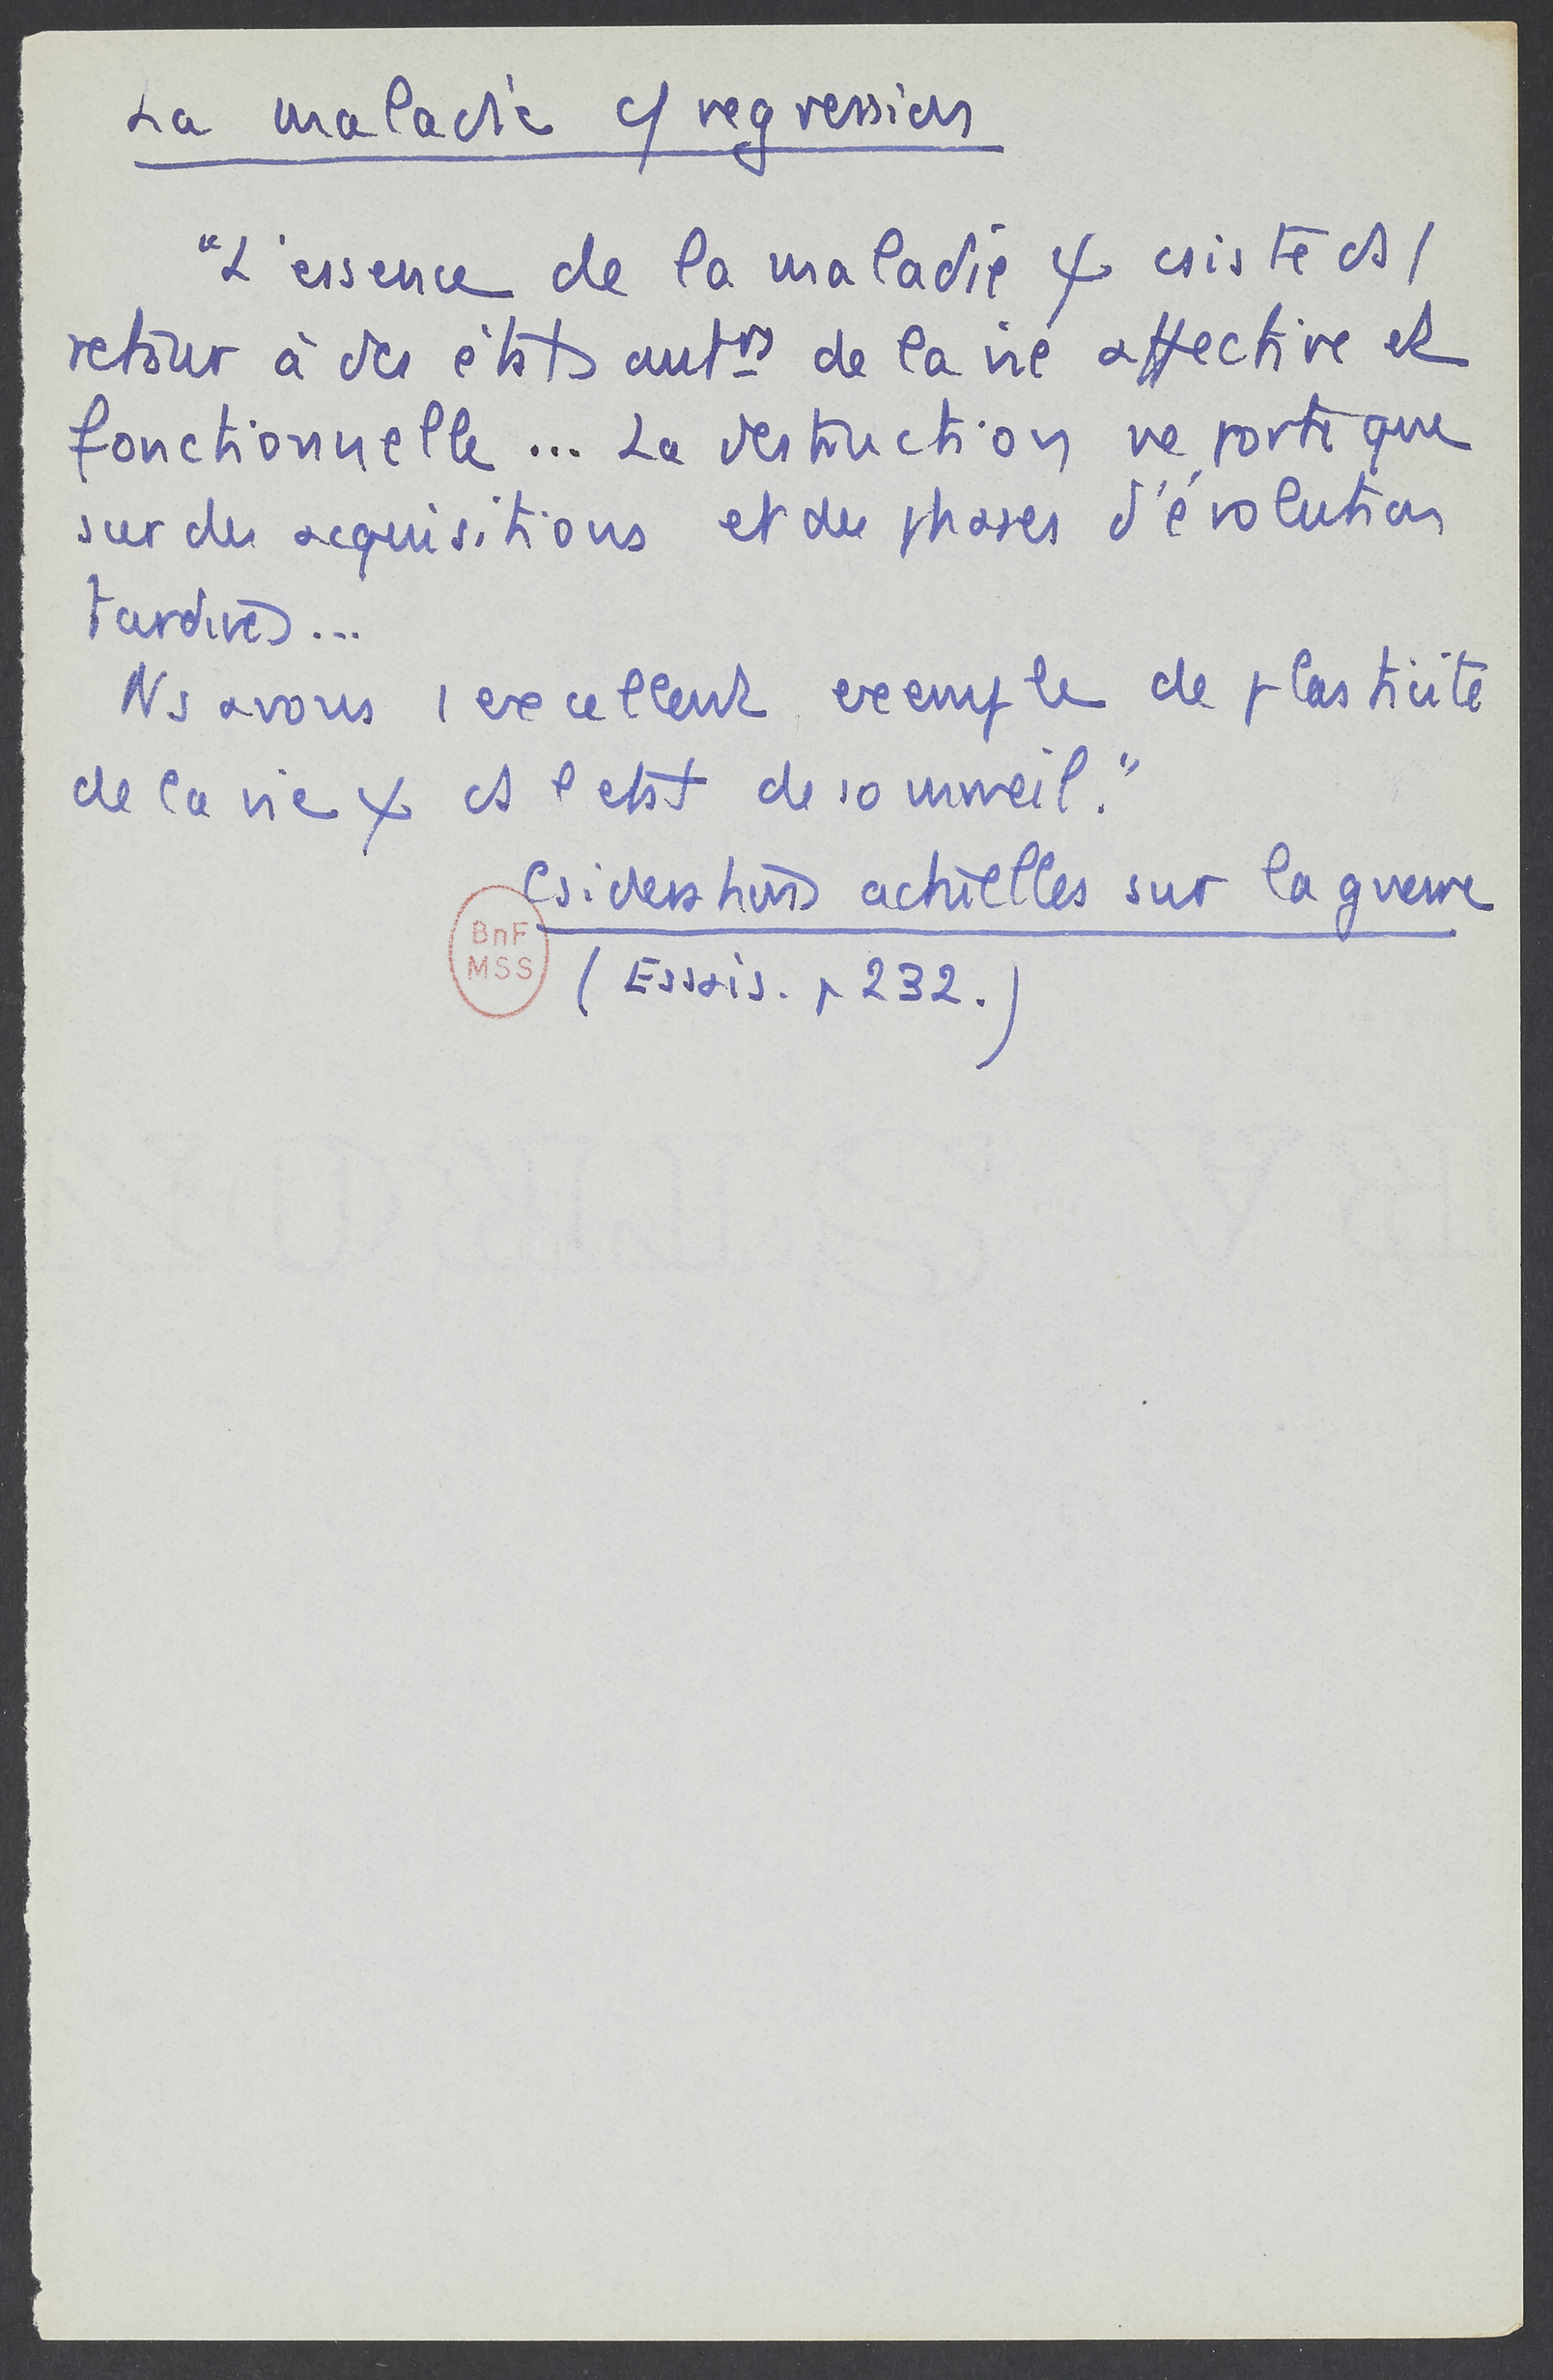 La maladie c/ regression
"L'essence de la maladie ψ csiste ds 1
retour à des états antrs de la vie affective et
fonctionnelle ... La destruction ne porte que
sur des acquisitions et des phases d'évolution
tardives...
Ns avons 1 excellent exemple de plasticité
de la vie ψ ds l'etat de sommeil."
Csiderations actuelles sur la guerre
BnF
MSS
(Essais. p 232.)